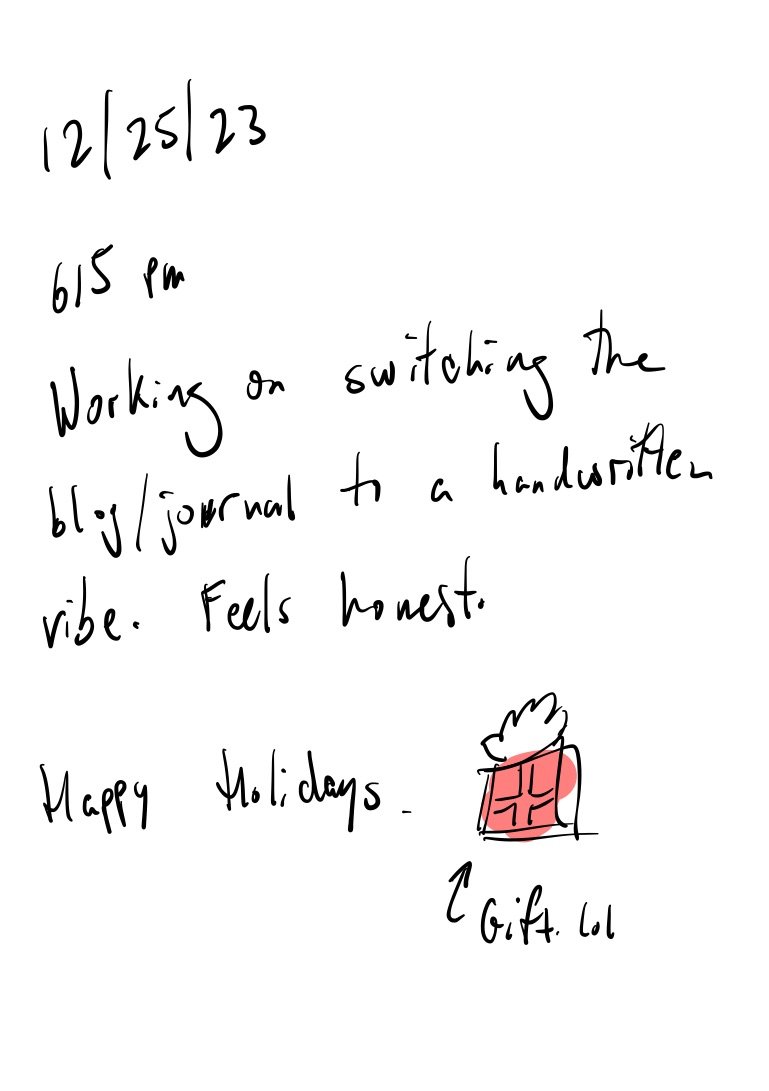 12/25/23
615 pm
Working on switching the
blog/journal to a handwritten
vibe. Feels honest.
Happy Holidays.
Gift. lol